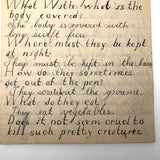 What With. What is the
body covered.
The body is covered with
long silky fur.
Where must they be kept
at night.
They must be kept in the barn
How do they sometimes
get out of the pen.
They scratch the ground.
What do they eat.
They eat vegetables.
Does it not seem cruel to
kill such pretty creatures.